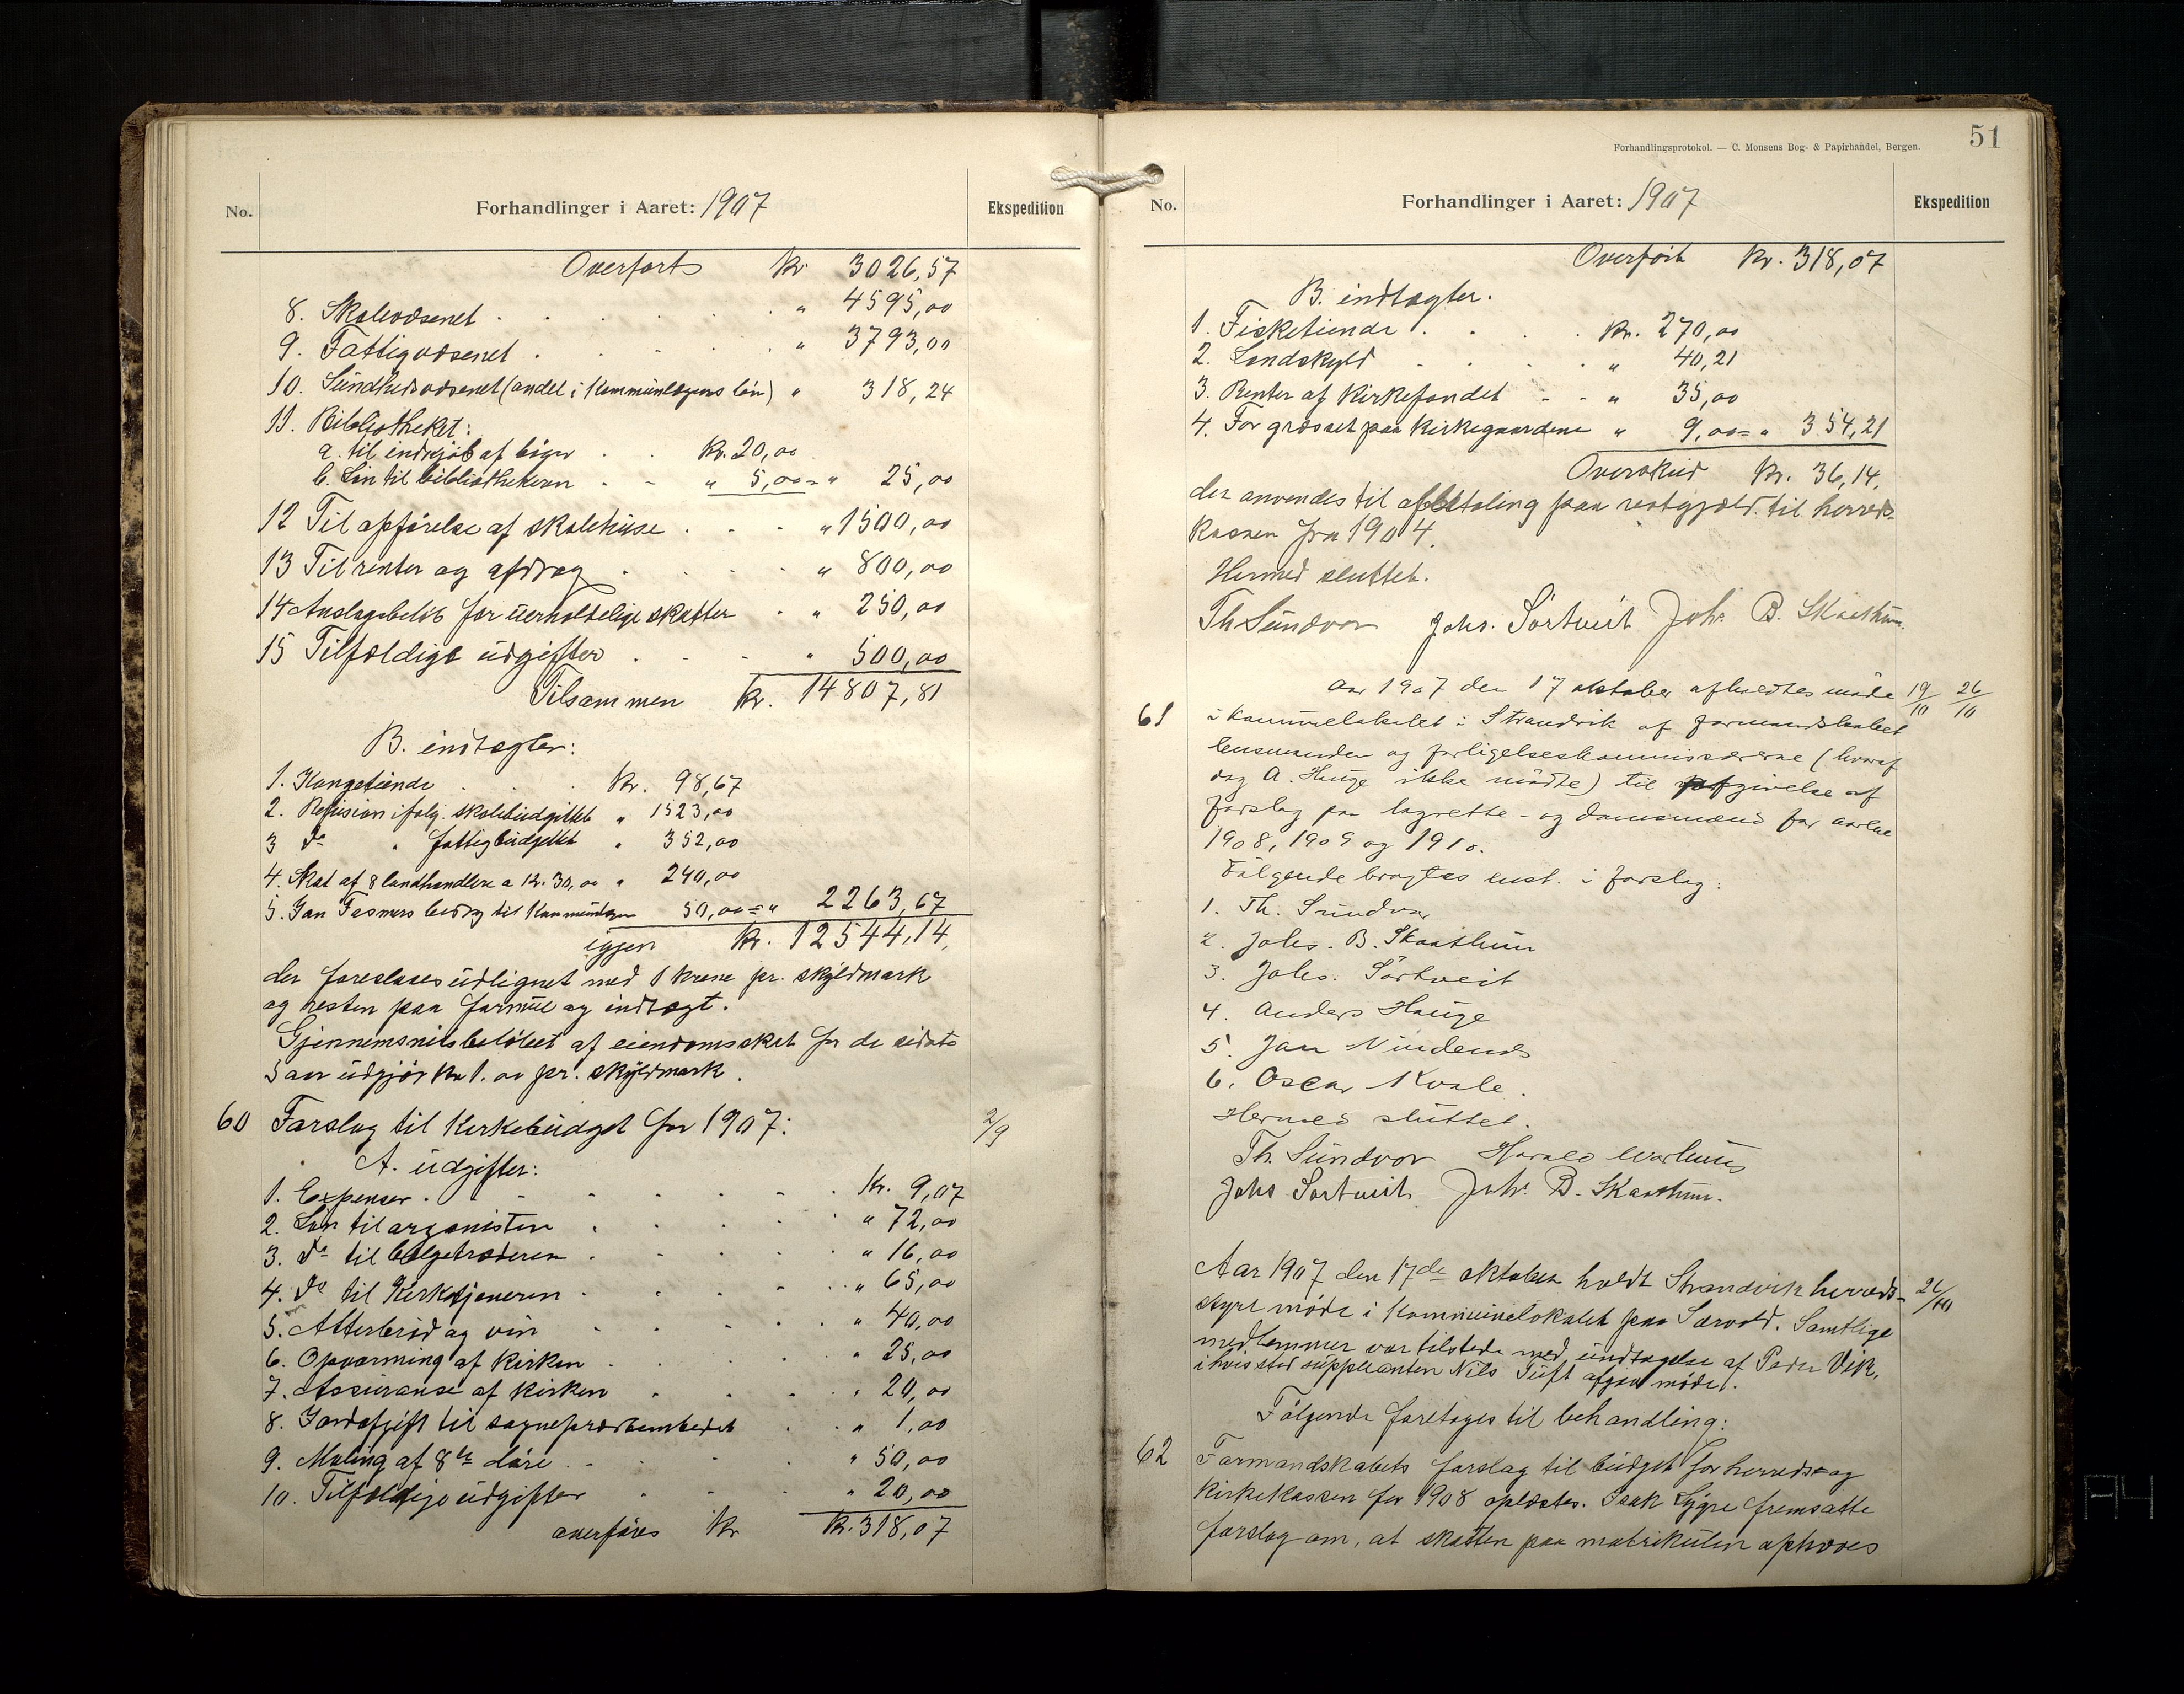 No.
Forhandlinger i Aaret: 1907
Ekspedition
Overførts Kr 3026,57
8. Skolevæsenet . . . . . " 4595,00
9. Fattigvæsenet . . . . . " 3793,00
10. Sundhedsvæsenet (andel i Kommunlægens løn) " 318,24
11. Bibliotheket:
a. til indkjøb af bøger . . Kr. 20,00
b. Løn til bibliothekeren . . " 5,00 = " 25,00
12 Til opførelse af skolehuse . . . " 1500,00
13 Til renter og afdrag . . . . " 800,00
14 Anslagsbeløb for uerholdelige skatter . " 250,00
15 Tilfældige udgifter . . . " 500,00
Tilsammen Kr. 14807,81
B. indtægter:
1. Kongetiende . . . Kr. 98,67
2. Refusion ifølg. skolebudgittet " 1523,00
3 do " fattigbudgettet " 352,00
4. Skat af 8 landhandlere a kr. 30,00 " 240,00
5. Jan Fasmers bidrag til Kommunelægen 50,00 = " 2263,67
igjen Kr. 12544,14
der foreslaaes udlignet med 1 krone pr. skyldmark
og resten paa formue og indtægt.
Gjennemsnitsbeløbet af eiendomsskat for de sidste
5 aar udgjør kr 1.00 pr. skyldmark.
60 Forslag til Kirkebudget for 1907: 2/9
A. udgifter:
1. Expenser . . . . . . Kr. 9,07
2. Løn til organisten . . . . " 72,00
3. do til bælgetræderen . . . . " 16,00
4. do til Kirketjeneren . . . . " 65,00
5. Alterbrød og vin . . . . " 40,00
6. Opvarming af kirken . . . . " 25,00
7. Assuranse af kirken . . . . " 20,00
8. Jordafgift til sogneprestembedet . . " 1,00
9. Maling af 8 døre . . . . " 50,00
10. Tilfældige udgifter . . . " 20,00
overføres Kr Kr. 318,07
Forhandlingsprotokol. — C. Monsens Bog- & Papirhandel, Bergen.
51
No.
Forhandlinger i Aaret: 1907
Ekspedition
Overført Kr. 318,07
B. indtægter.
1. Fisketiende . . . . Kr. 270,00
2. Landskyld . . . . " 40,21
3. Renter af Kirkefondet . . " 35,00
4. For græsset paa kirkegaardene " 9,00 = " 354,21
Overskud Kr. 36,14,
der anvendes til afbetaling paa restgjæld til herreds-
kassen fra 1904.
Hermed sluttet.
Th Sundvor Johs. Sörtveit Johs B. Skaathun.
Aar 1907 den 17 oktober afholdtes møde 19/10 26/10
61 i kommunelokalet i Strandvik af formandskabet
lensmanden og forligelseskommissærerne (hvoraf
dog A. Hauge ikke mødte) til afgivelse af
forslag paa lagrette- og domsmænd for aarene
1908, 1909 og 1910.
Følgende bragtes enst. i forslag:
1. Th. Sundvor
2. Johs. B. Skaathun
3. Johs. Sörtveit
4. Anders Hauge
5. Jan
6. Oscar Kvale.
Hermed sluttet.
Th. Sundvor Harald
Johs Sörtveit Johs B. Skaathun.
Aar 1907 den 17de oktober holdt Strandvik herreds- 26/10
styre møde i Kommunelokalet paa Sævold. Samtlige
medlemmer var tilstede med undtagelse af Peder Vik,
i hvis sted suppleanten Nils Tuft afgav møde.
Følgende foretoges til behandling:
62 Formandskabets forslag til budget for herreds- og
kirkekassen for 1908 oplæstes. Isak Lygre fremsatte
forslag om, at skatten paa matrikulen ophæves